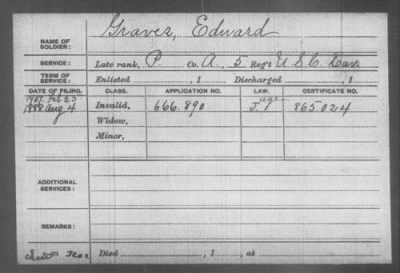 Graves, Edward
NAME OF
SOLDIER:
SERVICE: Late rank, P. Co. A., 5 Reg't U.S.C. Cav.
TERM OF
SERVICE: Enlisted , 1 Discharged , 1
DATE OF FILING. CLASS. APPLICATION NO. LAW. CERTIFICATE NO.
1907. Feb 25 age
1888 Aug 4 Invalid, 666.890 865024
Widow,
Minor,
ADDITIONAL
SERVICES:
REMARKS:
Died , 1 , at